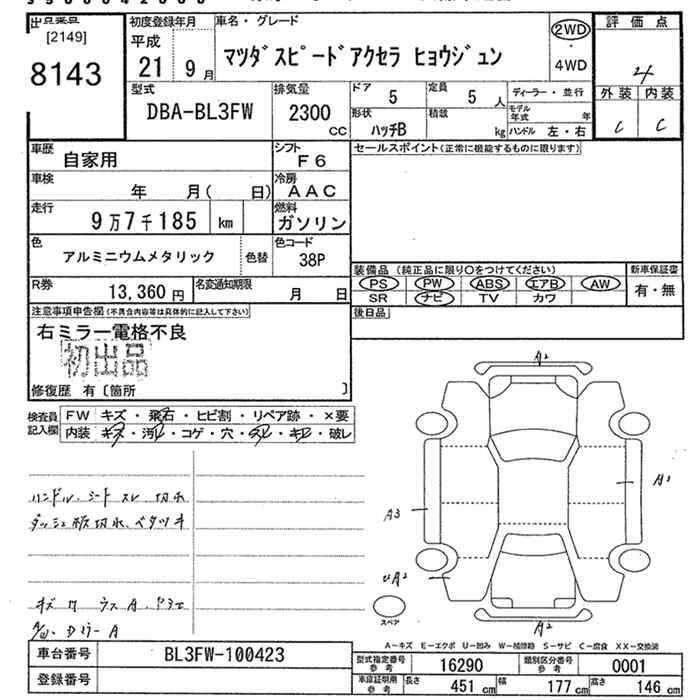 出品業品
[2149]
8143
初度登録年月
平成
21 9月
車名・グレード
マツダスピードアクセラ ヒョウジュン
2WD
・
4WD
評価点
4
外装 内装
C C
型式
DBA-BL3FW
排気量
2300
CC
ドア
5
定員
5人
形状
ハッチB
積載
kg
ディーラー・並行
モデル年式 年
ハンドル 左・右
車歴
自家用
シフト
F6
車検
年 月( 日)
冷房
AAC
走行
9万7千185 km
燃料
ガソリン
色
アルミニウムメタリック
色替
色コード
38P
R券
13,360円
名変通知期限
月 日
セールスポイント(正常に機能するものに限ります)
装備品 (純正品に限り○をつけてください)
PS PW ABS エアB AW
SR ナビ TV カワ
新車保証書
有・無
後日品
注意事項申告欄(不具合内容等は具体的に記入して下さい)
右ミラー電格不良
初出品
修復歴 有〔箇所 〕
検査員記入欄
FW キズ・飛石・ヒビ割・リペア跡・×要
内装 キズ・汚レ・コゲ・穴・スレ・キレ・破レ
ハンドル、シート スレ 切れ
ダッシュ板切れ、ベタツキ
A/W、Dミラー A
A2
A1
A3
UA2
A2
スペア
A-キズ E-エクボ U-凹み W-補修跡 S-サビ C-腐食 XX-交換済
車台番号
BL3FW-100423
登録番号
型式指定番号
参考
16290
類別区分番号
参考
0001
車庫証明用
参考
長さ 451cm 幅 177cm 高さ 146cm